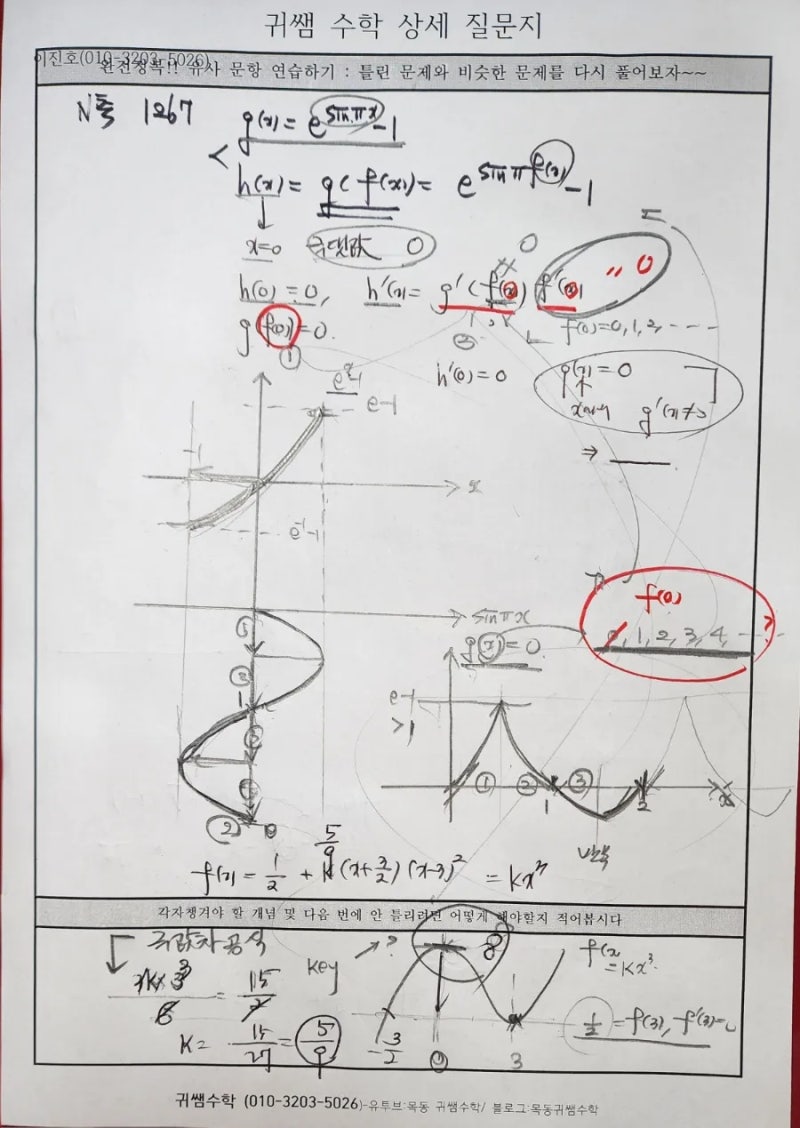 귀쌤 수학 상세 질문지
이진호(010-3203-5026)
완전정복!! 유사 문항 연습하기 : 틀린 문제와 비슷한 문제를 다시 풀어보자~~
N축 1267
g(x) = e^{sinπx} -1
h(x) = g(f(x)) = e^{sinπf(x)} -1
x=0 극댓값 0
0
h(0) = 0, h'(x) = g'(f(0)) f'(0) " 0
g(f(0)) = 0.
① ② f(0)=0, 1, 2, ----
h'(0) = 0
g(x) = 0
g'(x)≠0
⇒
e-1
-1
x
e⁻¹-1
sinπx
f(0)
0, 1, 2, 3, 4, ----
g(x) = 0.
e-1
>1
① ② ③
1 2
반복
f(x) = 1/2 + 5/9 (x+3/2) (x-3)² = kx³
각자챙겨야 할 개념 및 다음 번에 안 틀리려면 어떻게 해야할지 적어봅시다
극값차 공식
key → ? 8
f(x) = kx³.
K = 15/27 = 5/9
-3/2 0 3
1/2 = f(3), f'(3)=0
귀쌤수학 (010-3203-5026)-유투브:목동 귀쌤수학/ 블로그:목동귀쌤수학